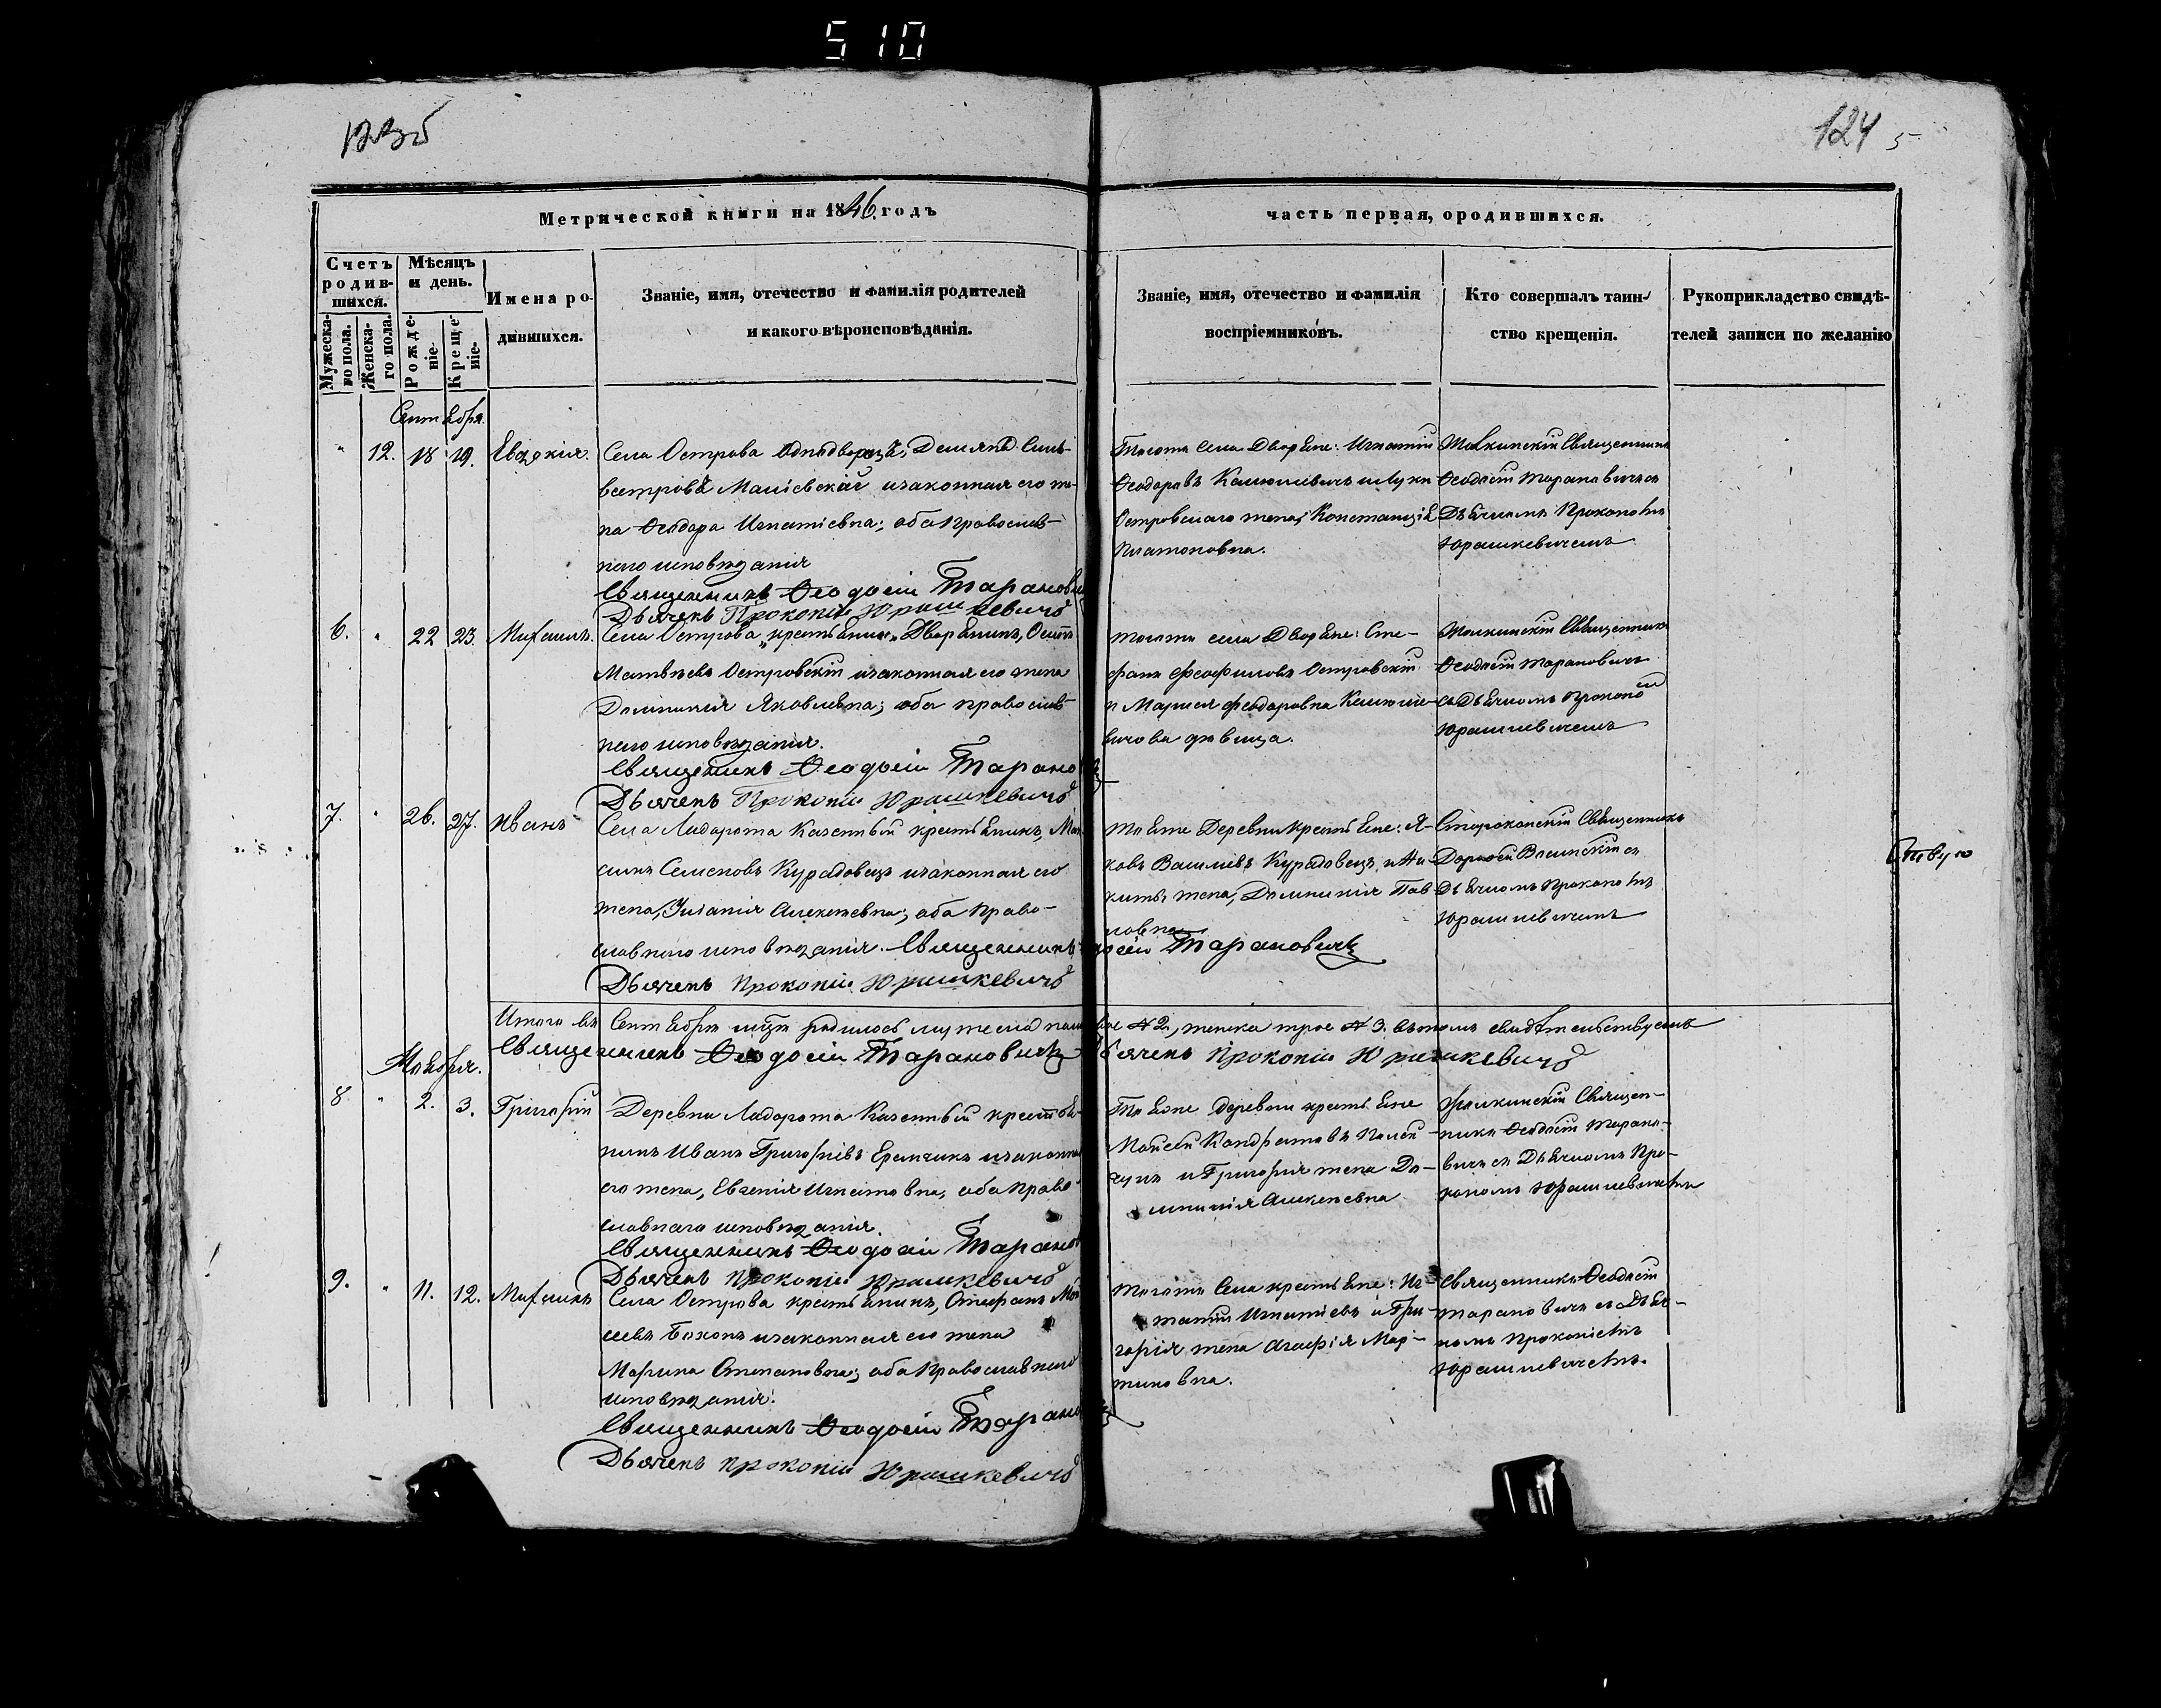 510
123об
124
5
Метрической книги на 1846 годъ
часть первая, ородившихся.
Счетъ родив-шихся.
Мѣсяцъ и день.
Имена ро-
дившихся.
Званіе, имя, отечество и фамилія родителей
и какого вѣроисповѣданія.
Званіе, имя, отечество и фамилія
воспріемниковъ.
Кто совершалъ таин-
ство крещенія.
Рукоприкладство свидѣ-
телей записи по желанію
Мужеска-го пола.
Женска-го пола.
Рожде-ніе.
Креще-ніе.
Сентября
12. 18 19. Евдокія. Села Острова Однодворецъ, Демянъ Силь-
вестровъ Маліевскій изаконная его же-
на Ѳеодора Игнатіевна; оба православ-
наго исповѣданія
Священникъ Ѳеодосій Таранови
Дьячекъ Прокопій Юрашкевичъ
Тогожъ села Дворяне: Игнатій
Ѳеодоровъ и Луки
Островскаго жена, Констанція
Платоновна.
Священникъ
Ѳеодосій Тарановичъ съ
Дьячкомъ Прокопомъ
Юрашкевичемъ
6. 22 23. Михаилъ. Села Острова крестьянинъ Дворянинъ, Осипъ
Матвѣевъ Островскій изаконная его жена
Домникія Яковлевна; оба православ-
наго исповѣданія.
Священникъ Ѳеодосій Тарано
Дьячекъ Прокопій Юрашкевичъ
тогожъ села Дворяне: Сте-
фанъ Феофиловъ Островскій
и Марія Феодоровна
дѣвица.
Священникъ
Ѳеодосій Тарановичъ
съ Дьячкомъ Прокопомъ
Юрашкевичемъ
7. 26. 27. Иванъ Села Ладорожа Казенный крестьянинъ, Мак
симъ Семеновъ Курадовецъ изаконная его
жена, Улianія Алексеевна; оба право-
славнаго исповѣданія. Священникъ осій Тарановичъ
Дьячекъ Прокопій Юрашкевичъ
Тояже Деревни крестьяне: Я-
ковъ Васильевъ Курадовецъ и Ни-
киты жена, Домникія Пав
ловна
Священникъ
Дьячкомъ Прокопомъ
Юрашкевичемъ
Итого въ Сентябрѣ мцѣ родилось мужеска пола двое №2, женска трое №3. въ томъ свидѣтельствуемъ
Священникъ Ѳеодосій Тарановичъ Дьячекъ Прокопій Юрашкевичъ
Ноября.
8 2. 3. Григорій Деревни Ладорожа Казенный крестья-
нинъ Иванъ Григорьевъ Еремчикъ изаконная
его жена, Евгенія Игнатовна, оба право-
славнаго исповѣданія.
Священникъ Ѳеодосій Таранов
Дьячекъ Прокопій Юрашкевичъ
Тояже деревни крестьяне
Моисей Кондратовъ
и Григорія жена До-
мникія Алексеевна
Священ-
никъ Ѳеодосій Тарано-
вичъ съ Дьячкомъ Про-
копомъ Юрашкевичемъ
9. 11. 12. Михаилъ Села Острова крестьянинъ, Стефанъ
изаконная его жена
Марина Степановна; оба православнаго
исповѣданія.
Священникъ Ѳеодосій Тарано
Дьячекъ Прокопій Юрашкевичъ
Тогожъ Села крестьяне: Иг-
натій Игнатіевъ и Гри-
горія жена Агафія Мар-
тиновна.
Священникъ Ѳеодосій
Тарановичъ съ Дьяч-
комъ Прокопіемъ
Юрашкевичемъ.